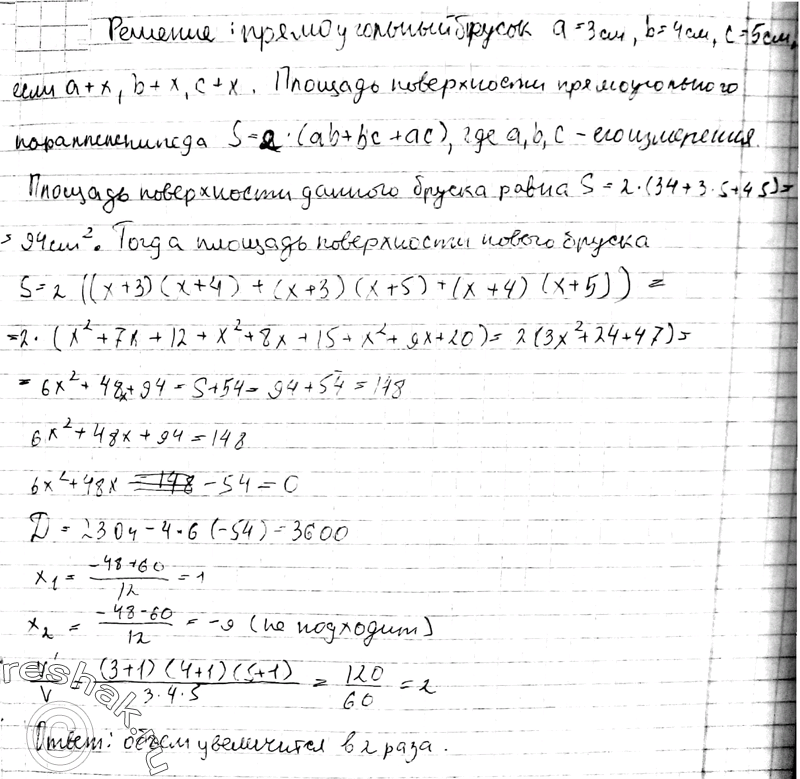 Решение: прямоугольный брусок a=3см, b=4см, c=5см,
если a+x, b+x, c+x. Площадь поверхности прямоугольного
параллелепипеда S=2·(ab+bc+ac), где a,b,c - его измерения.
Площадь поверхности данного бруска равна S=2·(34+3·5+45)=
= 94см². Тогда площадь поверхности нового бруска
S=2((x+3)(x+4)+(x+3)(x+5)+(x+4)(x+5))=
=2·(x²+7x+12+x²+8x+15+x²+9x+20)=2(3x²+24+47)=
= 6x²+48x+94=S+54=94+54=148
6x²+48x+94=148
6x²+48x -54=0
D=2304-4·6(-54)=3600
x₁=(-48+60)/12=1
x₂=(-48-60)/12=-9 (не подходит)
V'/V=(3+1)(4+1)(5+1)/3·4·5=120/60=2
Ответ: объём увеличится в 2 раза.
reshak.ru